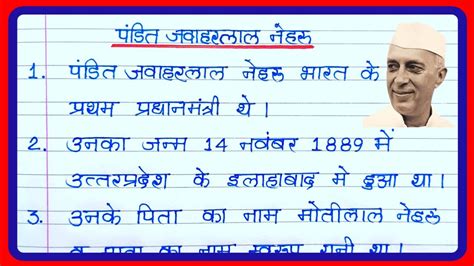 पंडित जवाहरलाल नेहरू
1. पंडित जवाहरलाल नेहरू भारत के
प्रथम प्रधानमंत्री थे।
2. उनका जन्म 14 नवंबर 1889 में
उत्तरप्रदेश के इलाहाबाद मे हुआ था।
3. उनके पिता का नाम मोतीलाल नेहरू
व माता का नाम स्वरूप रानी था।